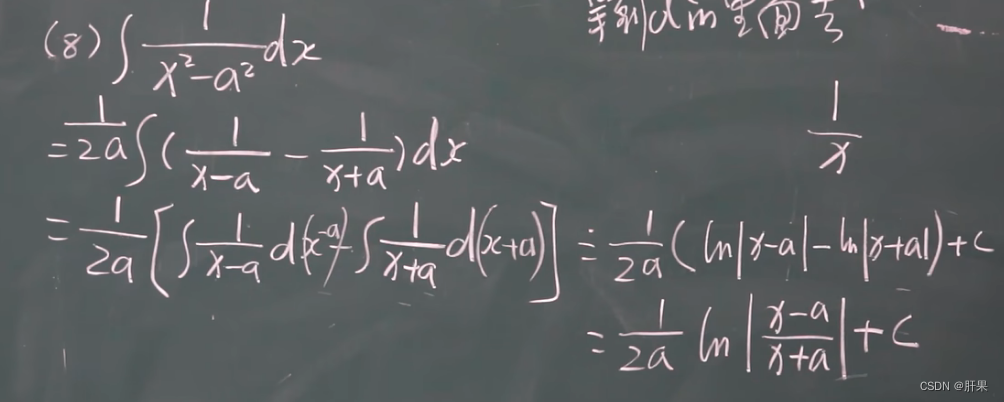 (8) ∫ 1/(x²-a²) dx
= 1/2a ∫ ( 1/(x-a) - 1/(x+a) ) dx
= 1/2a [ ∫ 1/(x-a) d(x-a) - ∫ 1/(x+a) d(x+a) ] = 1/2a ( ln|x-a| - ln|x+a| ) + C
= 1/2a ln | (x-a)/(x+a) | + C
1/x
CSDN @肝果